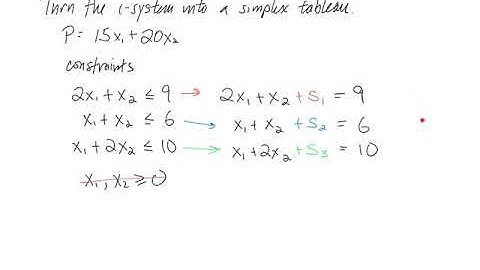 Turn the i-system into a simplex tableau.
P = 15x₁ + 20x₂
constraints
2x₁ + x₂ ≤ 9 → 2x₁ + x₂ + S₁ = 9
x₁ + x₂ ≤ 6 → x₁ + x₂ + S₂ = 6
x₁ + 2x₂ ≤ 10 → x₁ + 2x₂ + S₃ = 10
x₁, x₂ ≥ 0